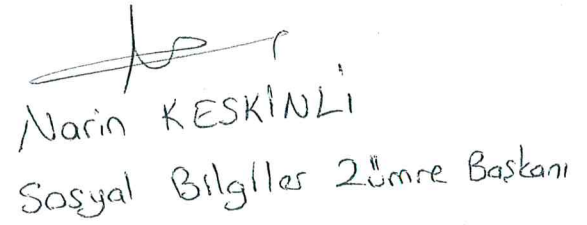 Narin KESKİNLİ
Sosyal Bilgiler Zümre Başkanı